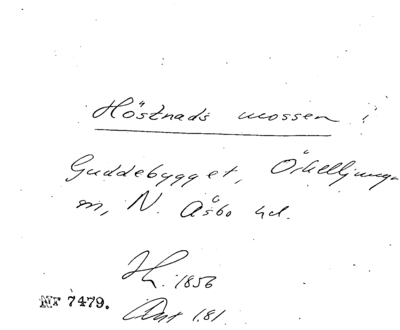 Höstnads mossen i
Guddebygget, Örkelljunga
m, N. Åsbo hd.
H. 1856
NF 7479.
Ant 1.81